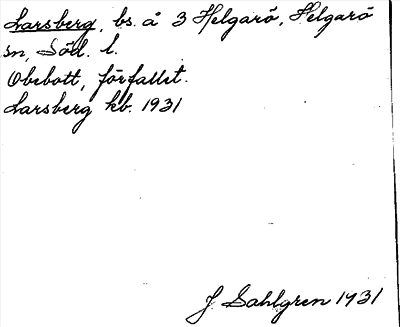 Larsberg, bs. å 3 Helgarö, Helgarö
sn, Söd. l.
Obebott, förfallet.
Larsberg kb. 1931
J. Sahlgren 1931